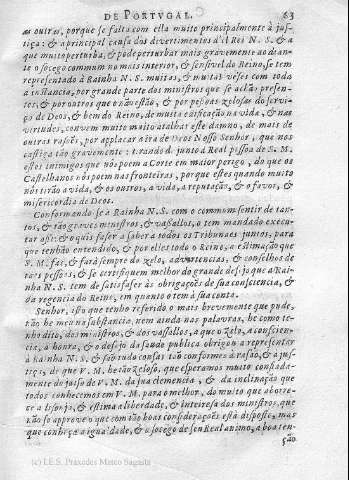 DE PORTVGAL. 63
as outras, porque se falta com ella muito principalmente à jus-
tiça: & a principal causa dos divertimentos d'el Rei N. S. & a
que muito perturba, & pode perturbar mais gravemente ao dian-
te o socego commum no mais interior, & sensivel do Reino, se tem
representado à Rainha N. S. muitas, & muitas vezes com toda
a instancia, por grande parte dos ministros que se achão presen-
tes, & por outros que o não estão, & por pessoas zelosas do servi-
ço de Deos, & bem do Reino, de muita edificação na vida, & nas
virtudes, convem muito atalhar este damno, de mais de
outras rasões, por applacar a ira de Deos Nosso Senhor, que nos
castiga tão gravemente; tirando de junto à Real pessoa de S. M.
estes inimigos que nos poem a Corte em maior perigo, do que os
Castelhanos o poem nas fronteiras, porque estes quando muito
nos tirão a vida, & os outros, a vida, a reputação, & o favor, &
misericordia de Deos.
Conformando se a Rainha N. S. com o commum sentir de tan-
tos, & tão graves ministros, & vassallos, o tem mandado execu-
tar assi: & o quis fazer a saber a todos os Tribunaes juntos, para
que tenhão entendido, & por elles todo o Reino, a estimação que
S. M. faz, & fará sempre do zelo, advertencias, & conselhos de
taes pessoas; & se certifiquem melhor do grande desejo que a Rai-
nha N. S. tem de satisfazer às obrigações de sua consciencia, &
da regencia do Reino, em quanto o tem à sua conta.
Senhor, isto que tenho referido o mais brevemente que pude,
não he meu na substancia, nem ainda nas palavras, he como te-
nho dito, dos ministros, & dos vassallos, a que o zelo, a conscien-
cia, a honra, & o desejo da saude publica obrigou a representar
à Rainha N. S. & são tudo cousas tão conformes à rasão, & a jus-
tiça, de que V. M. he tão zeloso, que esperamos muito confiada-
mente do juiso de V. M. da sua clemencia, & da inclinação que
todos conhecemos em V. M. para o melhor, do muito que aborre-
ce a lisonja, & estima a liberdade, & inteiresa dos ministros, que
não so approve o que com tão boas considerações está disposto, mas
que conheça a igualdade, & o socego de seu Real animo, a boa ten-
ção
(c) I.E.S. Práxedes Mateo Sagasta